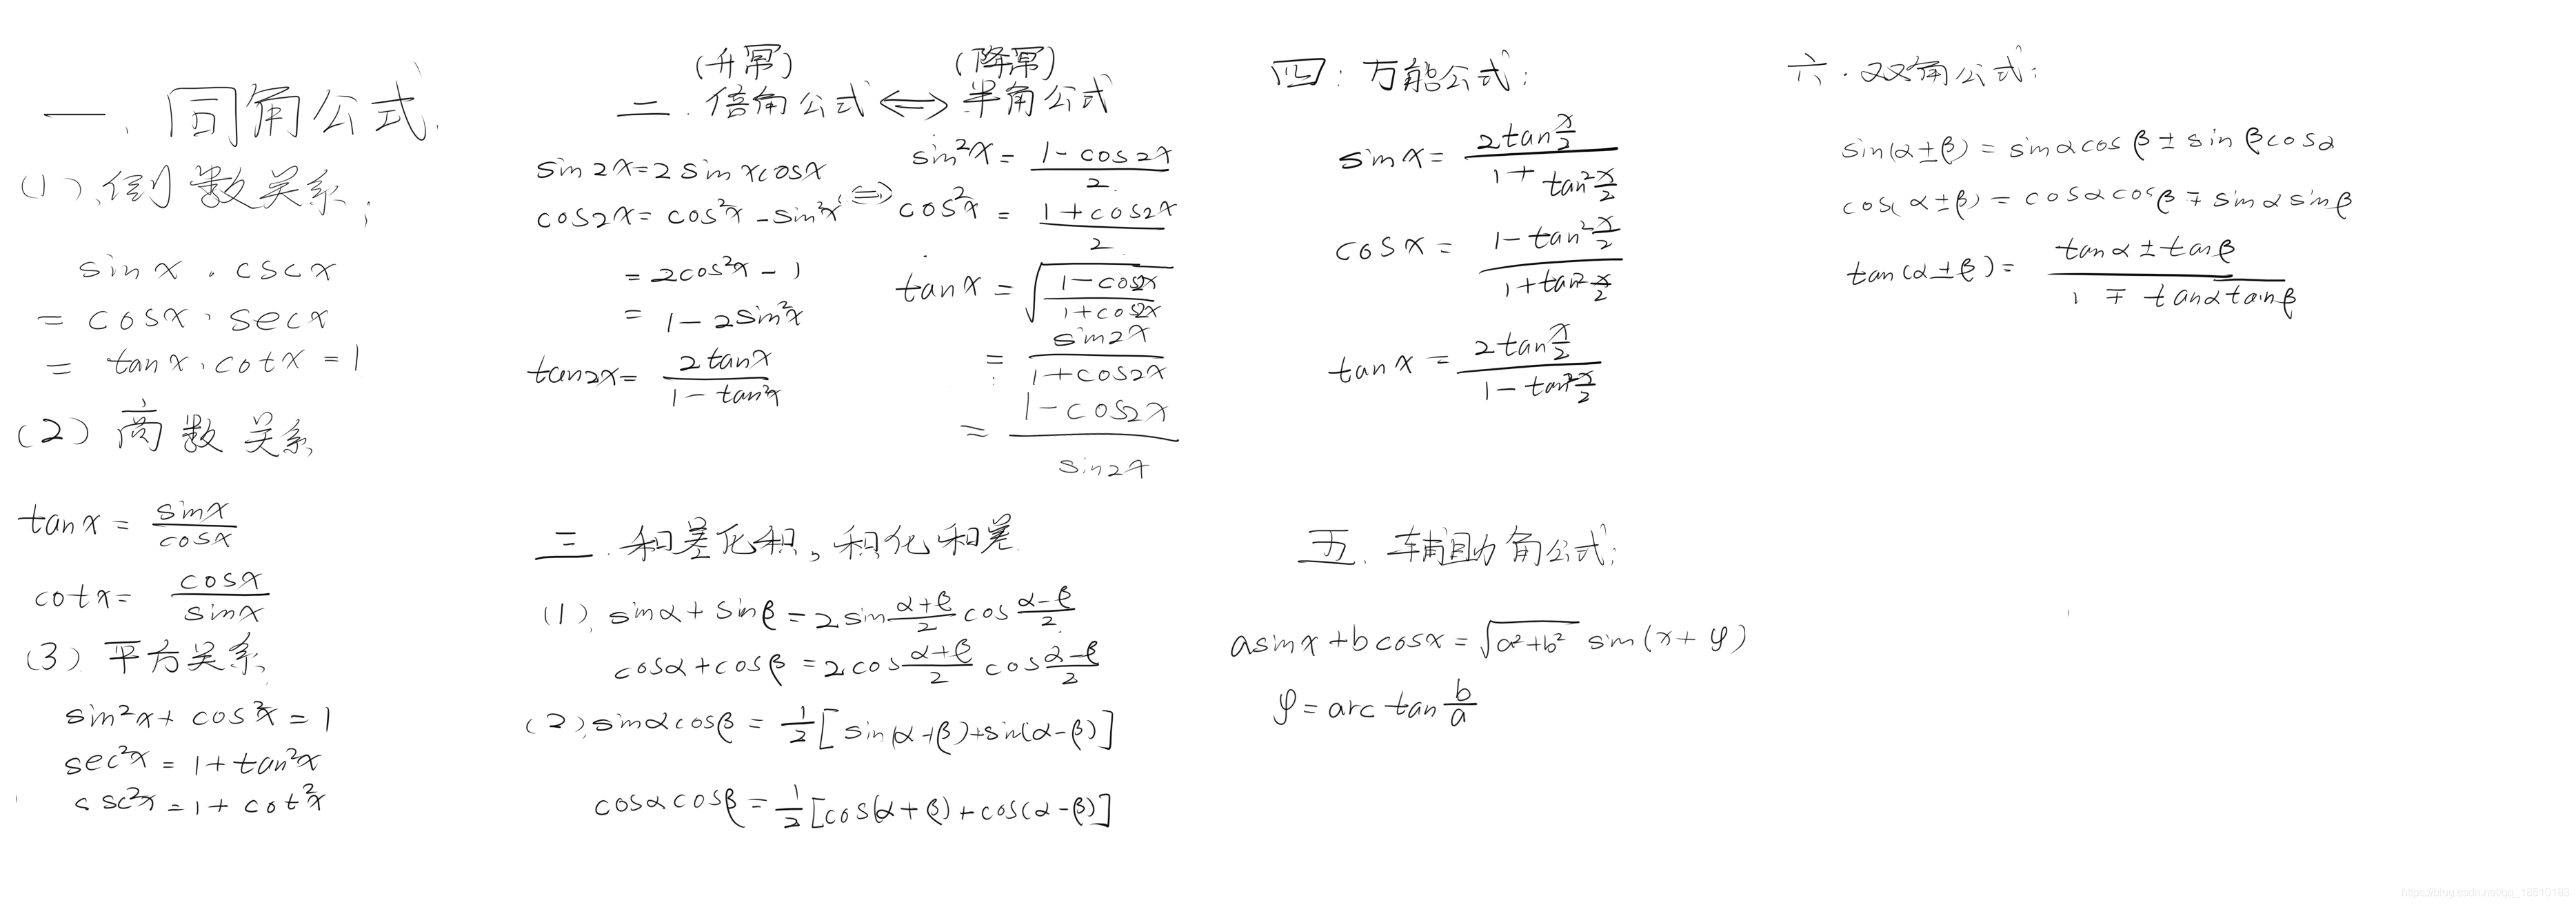 一、同角公式
(1)、倒数关系;
sinx · cscx
= cosx · secx
= tanx · cotx = 1
(2) 商数关系
tanx = sinx/cosx
cotx = cosx/sinx
(3) 平方关系
sin²x + cos²x = 1
sec²x = 1 + tan²x
csc²x = 1 + cot²x
(升幂) (降幂)
二. 倍角公式 <=> 半角公式
sin2x = 2sinxcosx
cos2x = cos²x - sin²x
= 2cos²x - 1
= 1 - 2sin²x
tan2x = 2tanx/(1 - tan²x)
<=>
sin²x = (1 - cos2x)/2
cos²x = (1 + cos2x)/2
tanx = √((1 - cos2x)/(1 + cos2x))
= sin2x/(1 + cos2x)
= (1 - cos2x)/sin2x
三. 和差化积, 积化和差
(1). sinα + sinβ = 2sin (α+β)/2 cos (α-β)/2
cosα + cosβ = 2cos (α+β)/2 cos (α-β)/2
(2). sinαcosβ = 1/2 [sin(α+β)+sin(α-β)]
cosαcosβ = 1/2 [cos(α+β)+cos(α-β)]
四: 万能公式:
sinx = 2tan(x/2)/(1 + tan²(x/2))
cosx = (1 - tan²(x/2))/(1 + tan²(x/2))
tanx = 2tan(x/2)/(1 - tan²(x/2))
五. 辅助角公式:
asinx + bcosx = √(a²+b²) sin(x+φ)
φ = arctan b/a
六. 双角公式:
sin(α±β) = sinαcosβ ± sinβcosα
cos(α±β) = cosαcosβ ∓ sinαsinβ
tan(α±β) = (tanα ± tanβ)/(1 ∓ tanαtanβ)
https://blog.csdn.net/qq_18510183